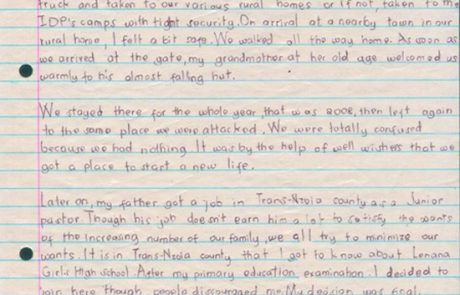 truck and taken to our various rural homes or if not, taken to the
IDP's camps with tight security. On arrival at a nearby town in our
rural home, I felt a bit safe. We walked all the way home. As soon as
we arrived at the gate, my grandmother at her old age welcomed us
warmly to his almost falling hut.
We stayed there for the whole year, that was 2008, then left again
to the same place we were attacked. We were totally confused
because we had nothing. It was by the help of well wishers that we
got a place to start a new life.
Later on, my father got a job in Trans-Nzoia county as a Junior
pastor. Though his job doesn't earn him a lot to satisfy the wants
of the increasing number of our family, we all try to minimize our
wants. It is in Trans-Nzoia county that I got to know about Lenana
Girls High school. After my primary education examination. I decided to
join here though people discouraged me. My decision was final.